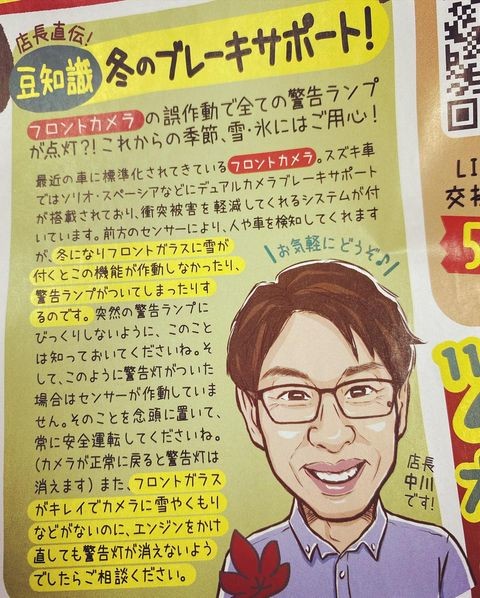 店長直伝!
豆知識 冬のブレーキサポート!
フロントカメラの誤作動で全ての警告ランプ
が点灯?!これからの季節、雪・氷にはご用心!
最近の車に標準化されてきているフロントカメラ。スズキ車
ではソリオ・スペーシアなどにデュアルカメラブレーキサポート
が搭載されており、衝突被害を軽減してくれるシステムが付
いています。前方のセンサーにより、人や車を検知してくれます
が、冬になりフロントガラスに雪が
付くとこの機能が作動しなかったり、
警告ランプがついてしまったりす
るのです。突然の警告ランプに
びっくりしないように、このこと
は知っておいてくださいね。そ
して、このように警告灯がついた
場合はセンサーが作動していませ
ん。そのことを念頭に置いて、
常に安全運転してくださいね。
(カメラが正常に戻ると警告灯は
消えます)また、フロントガラス
がキレイでカメラに雪やくもり
などがないのに、エンジンをかけ
直しても警告灯が消えないよう
でしたらご相談ください。
お気軽にどうぞ♪
店長
中川
です!
LI
交
5
11